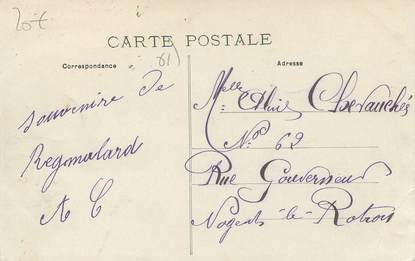 20€
CARTE POSTALE
Correspondance
Adresse
61)
souvenire de
Regmalard
A C
Melle Chevauchés
N° 62
Rue Gouverneur
Nogent-le-Rotrou